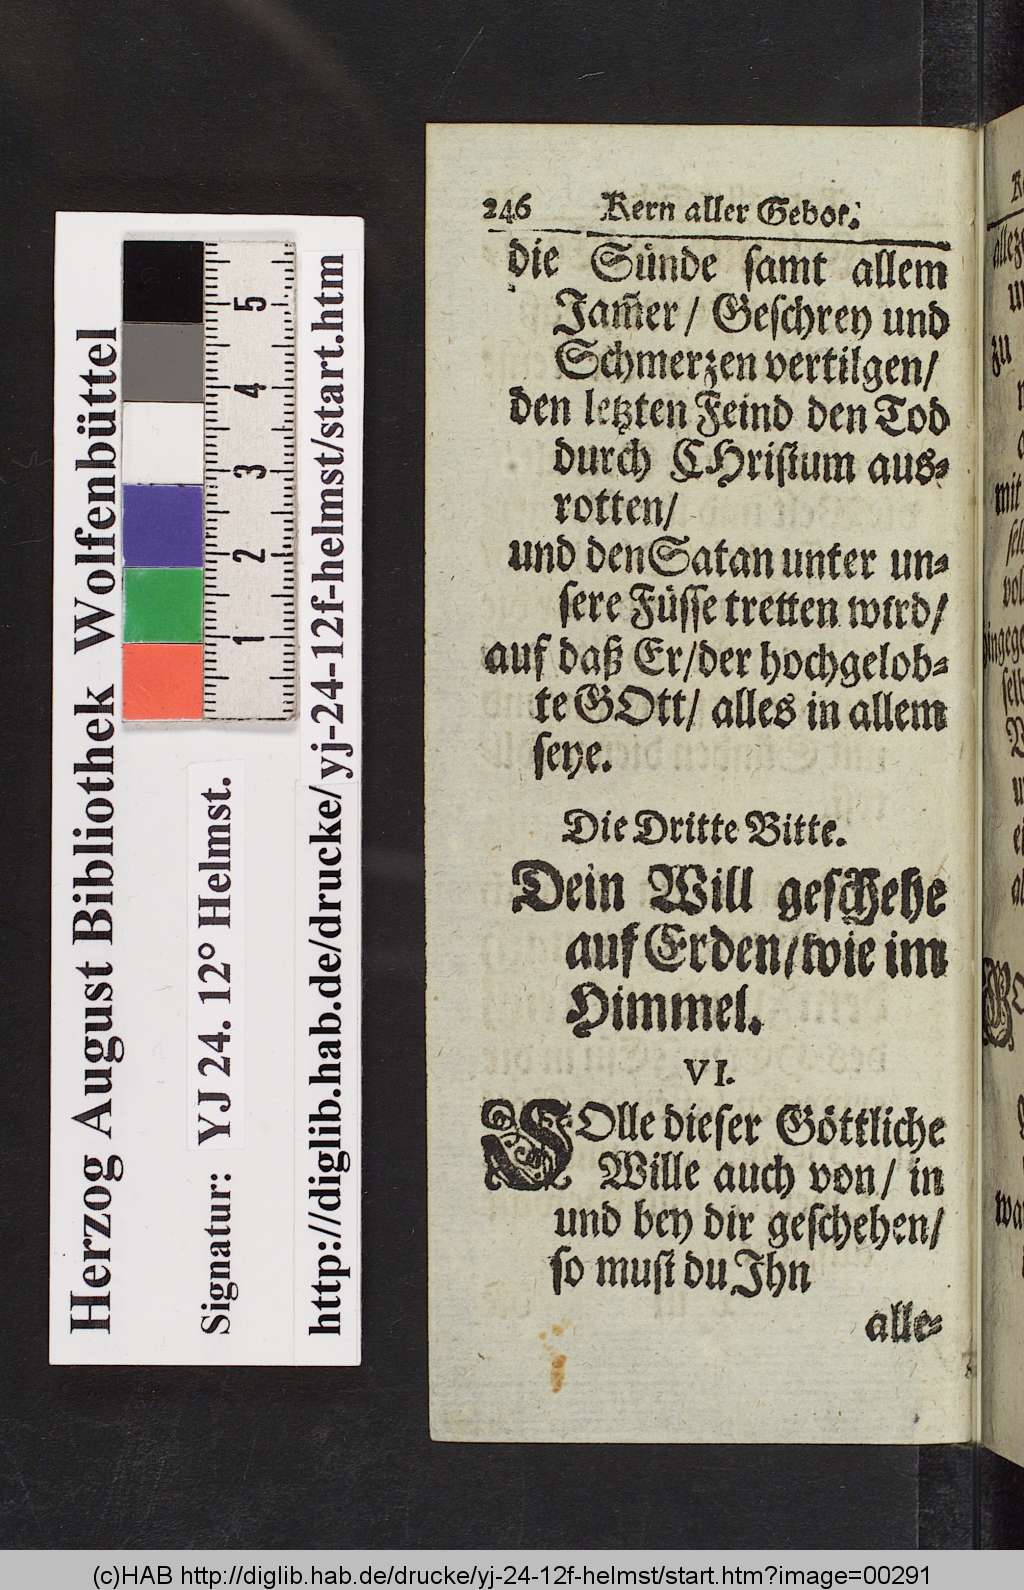 Herzog August Bibliothek Wolfenbüttel
Signatur: YJ 24. 12° Helmst.
http://diglib.hab.de/drucke/yj-24-12f-helmst/start.htm
5
4
3
2
1
246 Kern aller Gebot.
die Sünde samt allem
Jam̃er / Geschrey und
Schmerzen vertilgen/
den letzten Feind den Tod
durch CHristum aus-
rotten/
und den Satan unter un-
sere Füsse tretten wird/
auf daß Er/der hochgelob-
te GOtt/ alles in allem
seye.
Die Dritte Bitte.
Dein Will geschehe
auf Erden/wie im
Himmel.
VI.
WOlle dieser Göttliche
Wille auch von/ in
und bey dir geschehen/
so must du Jhn
alle-
zu
mit
(c)HAB http://diglib.hab.de/drucke/yj-24-12f-helmst/start.htm?image=00291